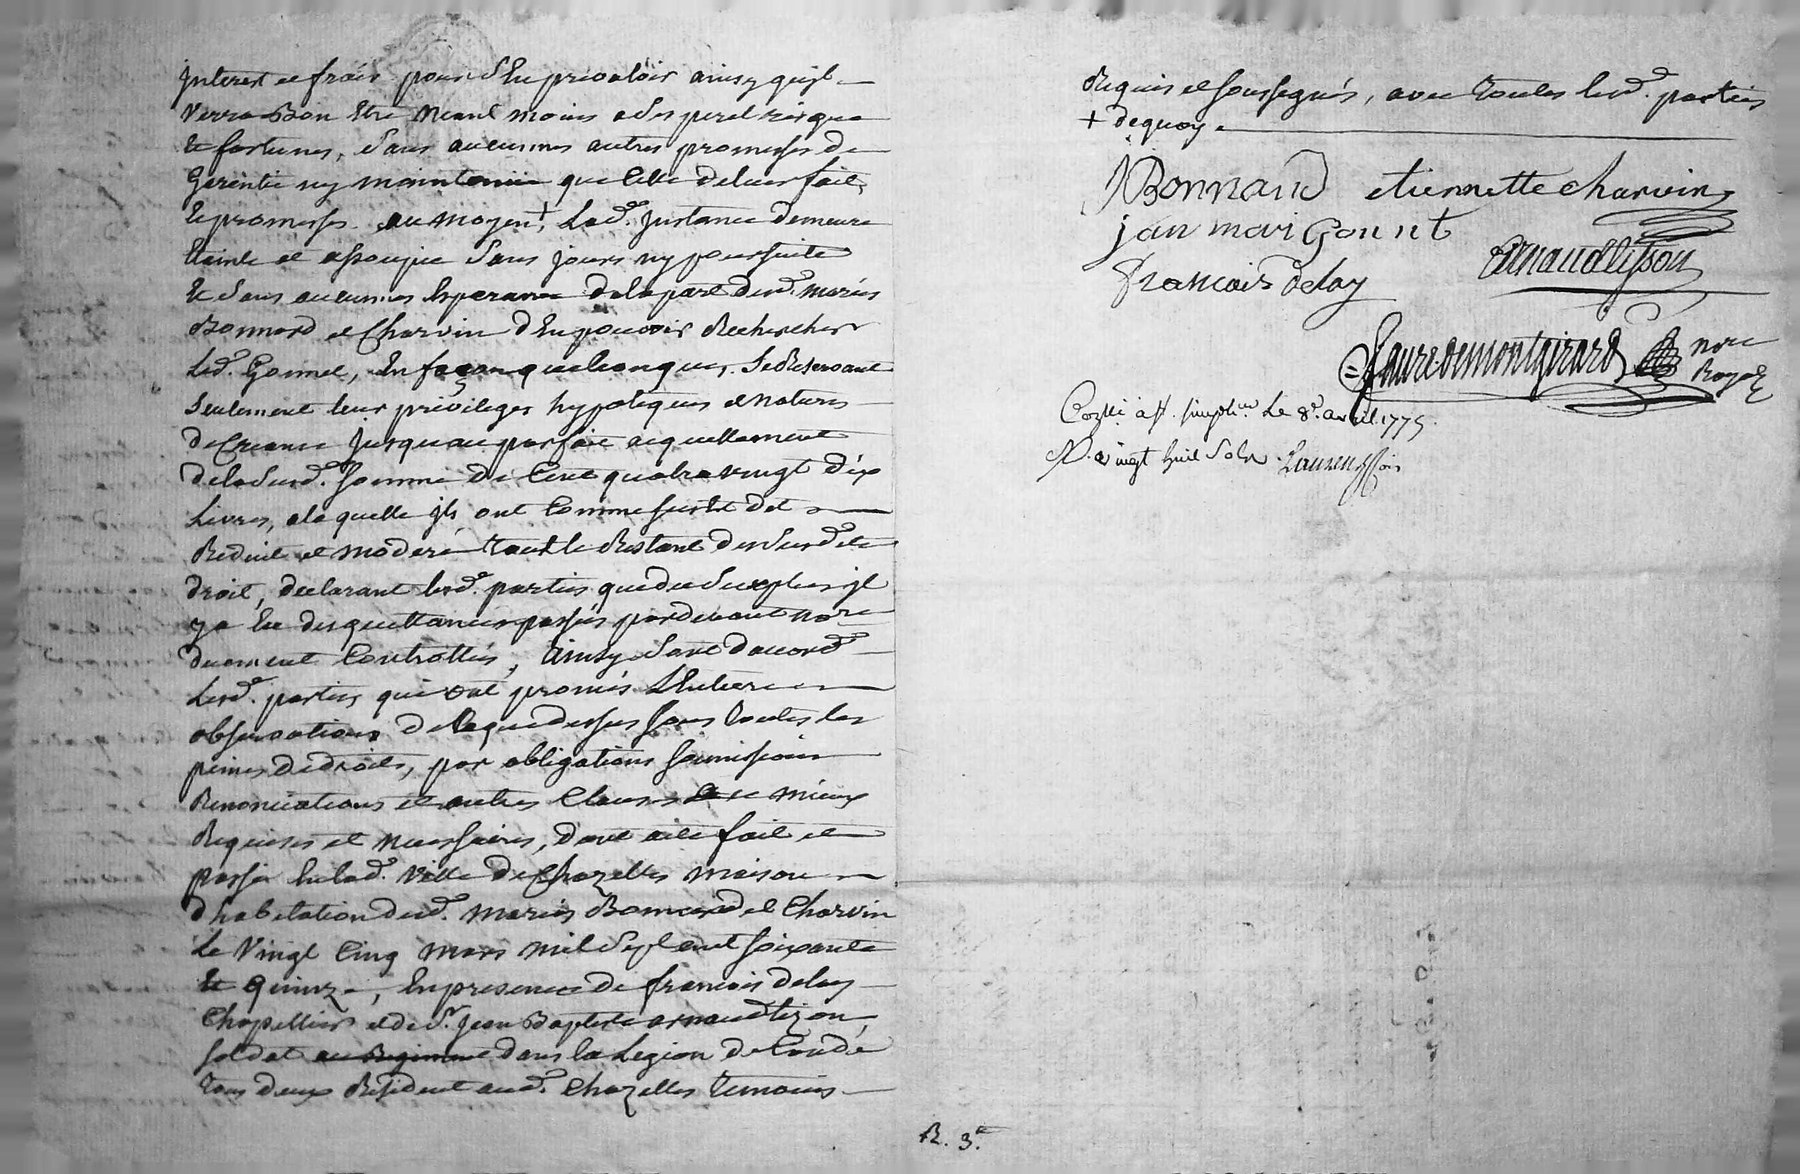 Interest et frais pour s'en prevaloir ainsy qujl
verra Bon etre neant moins a ses peril risque
et fortunes, sans aucunnes autres promesses de
Garentie ny maintenue que celle de leur fait,
et promesses. au moyen + lad.e Instance demeure
eteinte et assoupie sans jours ny poursuite
et sans aucunnes Esperance de la part desd. mariés
Bonnard et Charvin d'En pouvoir Rechercher
led. Gonnet, en façon quelconque, se Reservant
seulement leur privileges hypoteques et nature
de Creance jusqu au parfait acquittement
de la susd. somme de cent quatre vingt dix
Livres, a la quelle jls ont comme sus est dit
Reduit et moderé tout le Restant desd
droit, declarant lesd. parties que du surplus jl
y a eu des quittances passés pardevant no.re
duement Controllés, Ainsy sont d'accord
Lesd. parties qui ont promis L'Entiere
observations de ce que dessus sous toutes les
peines de droits, par obligations soumissions
Renonciations et autres Clauses mieux
Requises et necessaires, dont acte fait et
passé En lad. Ville de Chazelles maison
d'habitation desd. mariés Bonnard et Charvin
Le Vingt Cinq mars mil sept cent soixante
et quinze, En presence de francois delay
Chapellier et de S.r Jean Baptiste arnaud tizon,
soldat au Regiment dans la Legion de Condé
tous deux Resident aud. Chazelles temoins
Requis et soussegnés, avec toutes lesd. parties
+ de quoy.
J Bonnard etiennette charvin
jan mari Gonnet
arnaud tisson
francois delay
faure de montgirard no.re Royal
Con.lé à S.t simphorien Le 8.e avril 1775
R. vingt huit sols. Laurenssois
R. 3.e